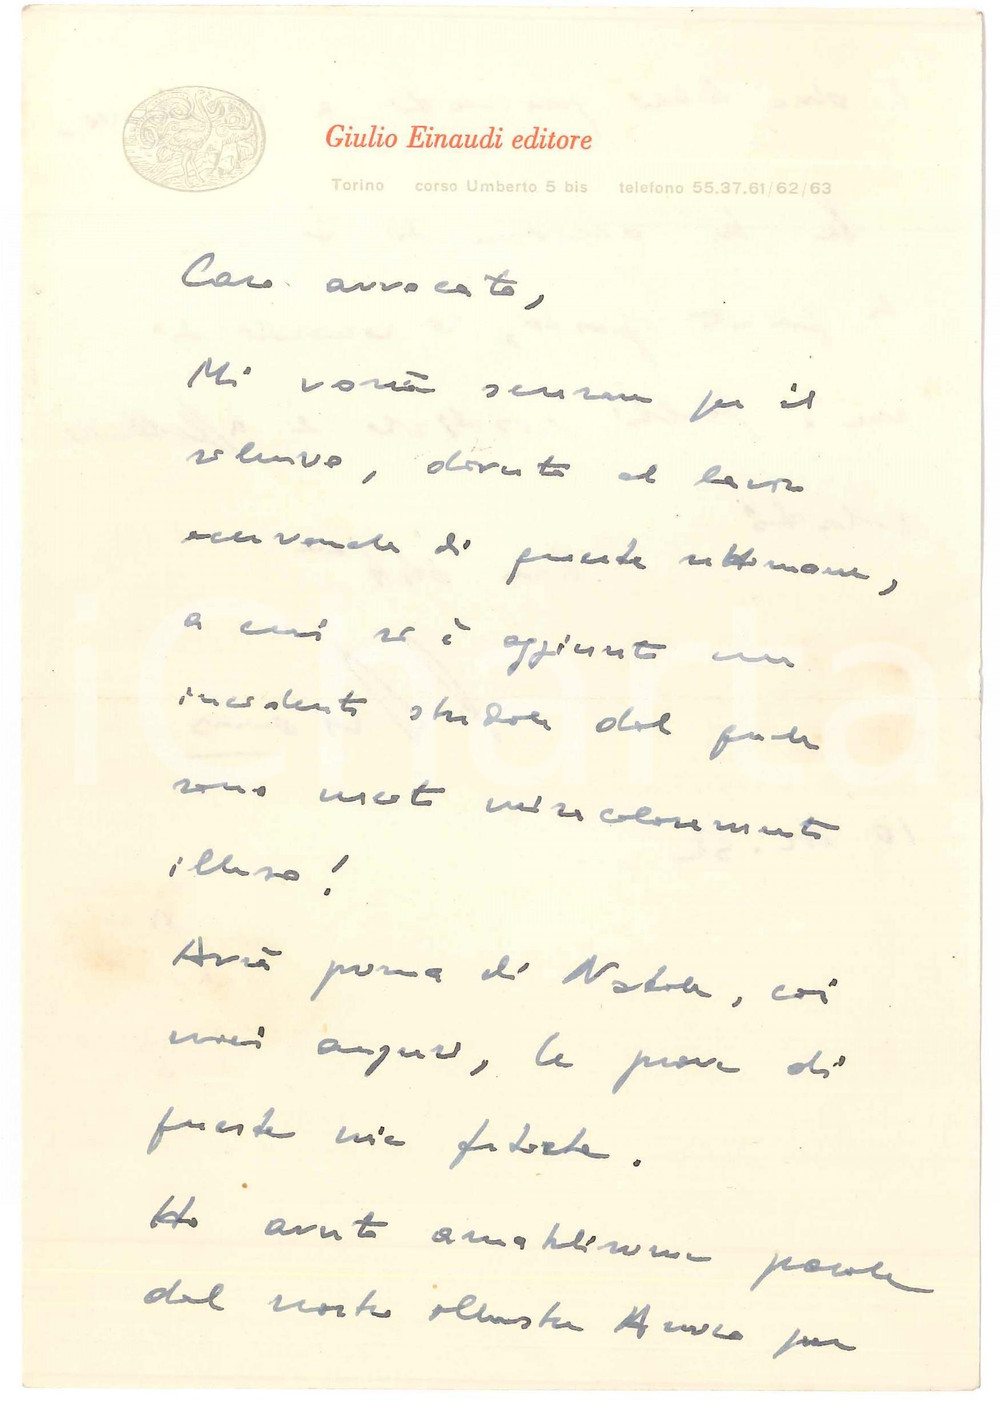 Giulio Einaudi editore
Torino corso Umberto 5 bis telefono 55.37.61/62/63
Caro avvocato,
Mi vorrà scusare per il
silenzio, dovuto al lavoro
di queste settimane,
a cui si è aggiunto un
incidente stradale dal quale
sono uscito miracolosamente
illeso!
Avrà prima di Natale, coi
miei auguri, le prove di
queste mie
Ho avuto amabilissime parole
dal nostro illustre Amico per
iCharta